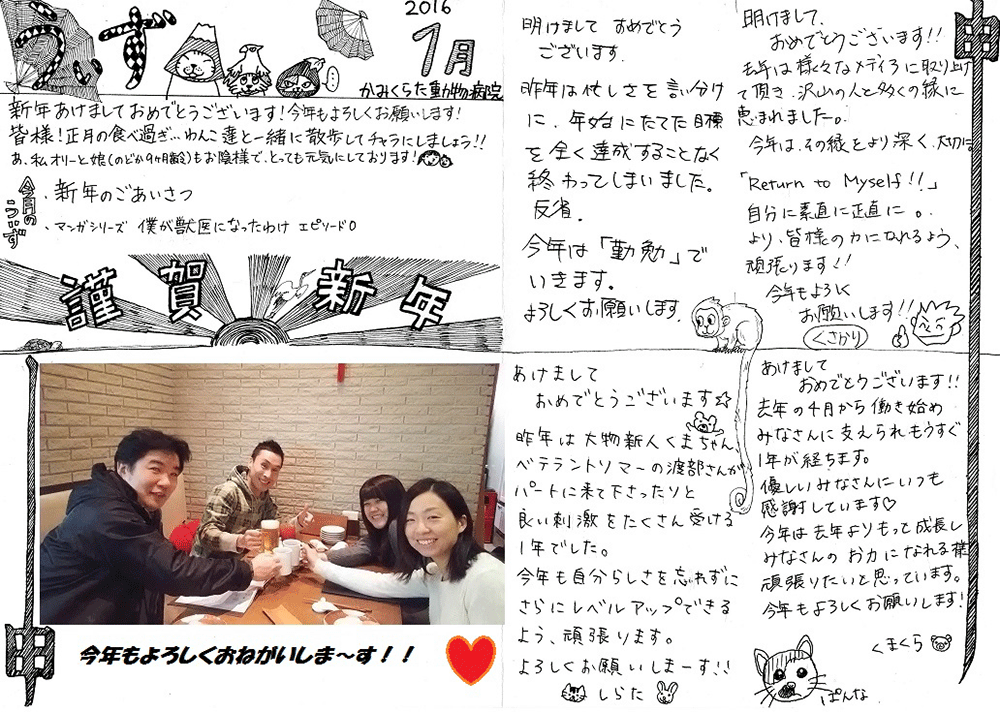 うぃず
2016
1月
かみくらた動物病院
新年あけましておめでとうございます!今年もよろしくお願いします!
皆様!正月の食べ過ぎ…わんこ達と一緒に散歩してチャラにしましょう!!
あ、私オリーと娘(のどか9ヶ月齢)もお陰様で、とっても元気にしております!
今月のうぃず
・新年のごあいさつ
・マンガシリーズ 僕が獣医になったわけ エピソード0
謹賀新年
申
今年もよろしくおねがいしま〜す!!
明けまして おめでとう
ございます.
昨年は忙しさを言い分け
に、年始にたてた目標
を全く達成することなく
終わってしまいました。
反省.
今年は「勤勉」で
いきます。
よろしくお願いします.
明けまして、
おめでとうございます!!
去年は様々なメディアに取り上げ
て頂き、沢山の人と多くの縁に
恵まれました。
今年は、その縁をより深く、大切に
「Return to Myself!!」
自分に素直に正直に。
より、皆様の力になれるよう、
頑張ります!!
今年もよろしく
お願いします!!
くさかり
申
あけまして
おめでとうございます☆
昨年は大物新人くまちゃん
ベテラントリマーの渡部さんが
パートに来て下さったりと
良い刺激をたくさん受ける
1年でした。
今年も自分らしさを忘れずに
さらにレベルアップできる
よう、頑張ります。
よろしくお願いしまーす!!
しらた
あけまして
おめでとうございます!!
去年の4月から働き始め
みなさんに支えられもうすぐ
1年が経ちます。
優しいみなさんにいつも
感謝しています♡
今年は去年よりもって成長し
みなさんのお力になれる様
頑張りたいと思っています。
今年もよろしくお願いします!
くまくら
ぽんな